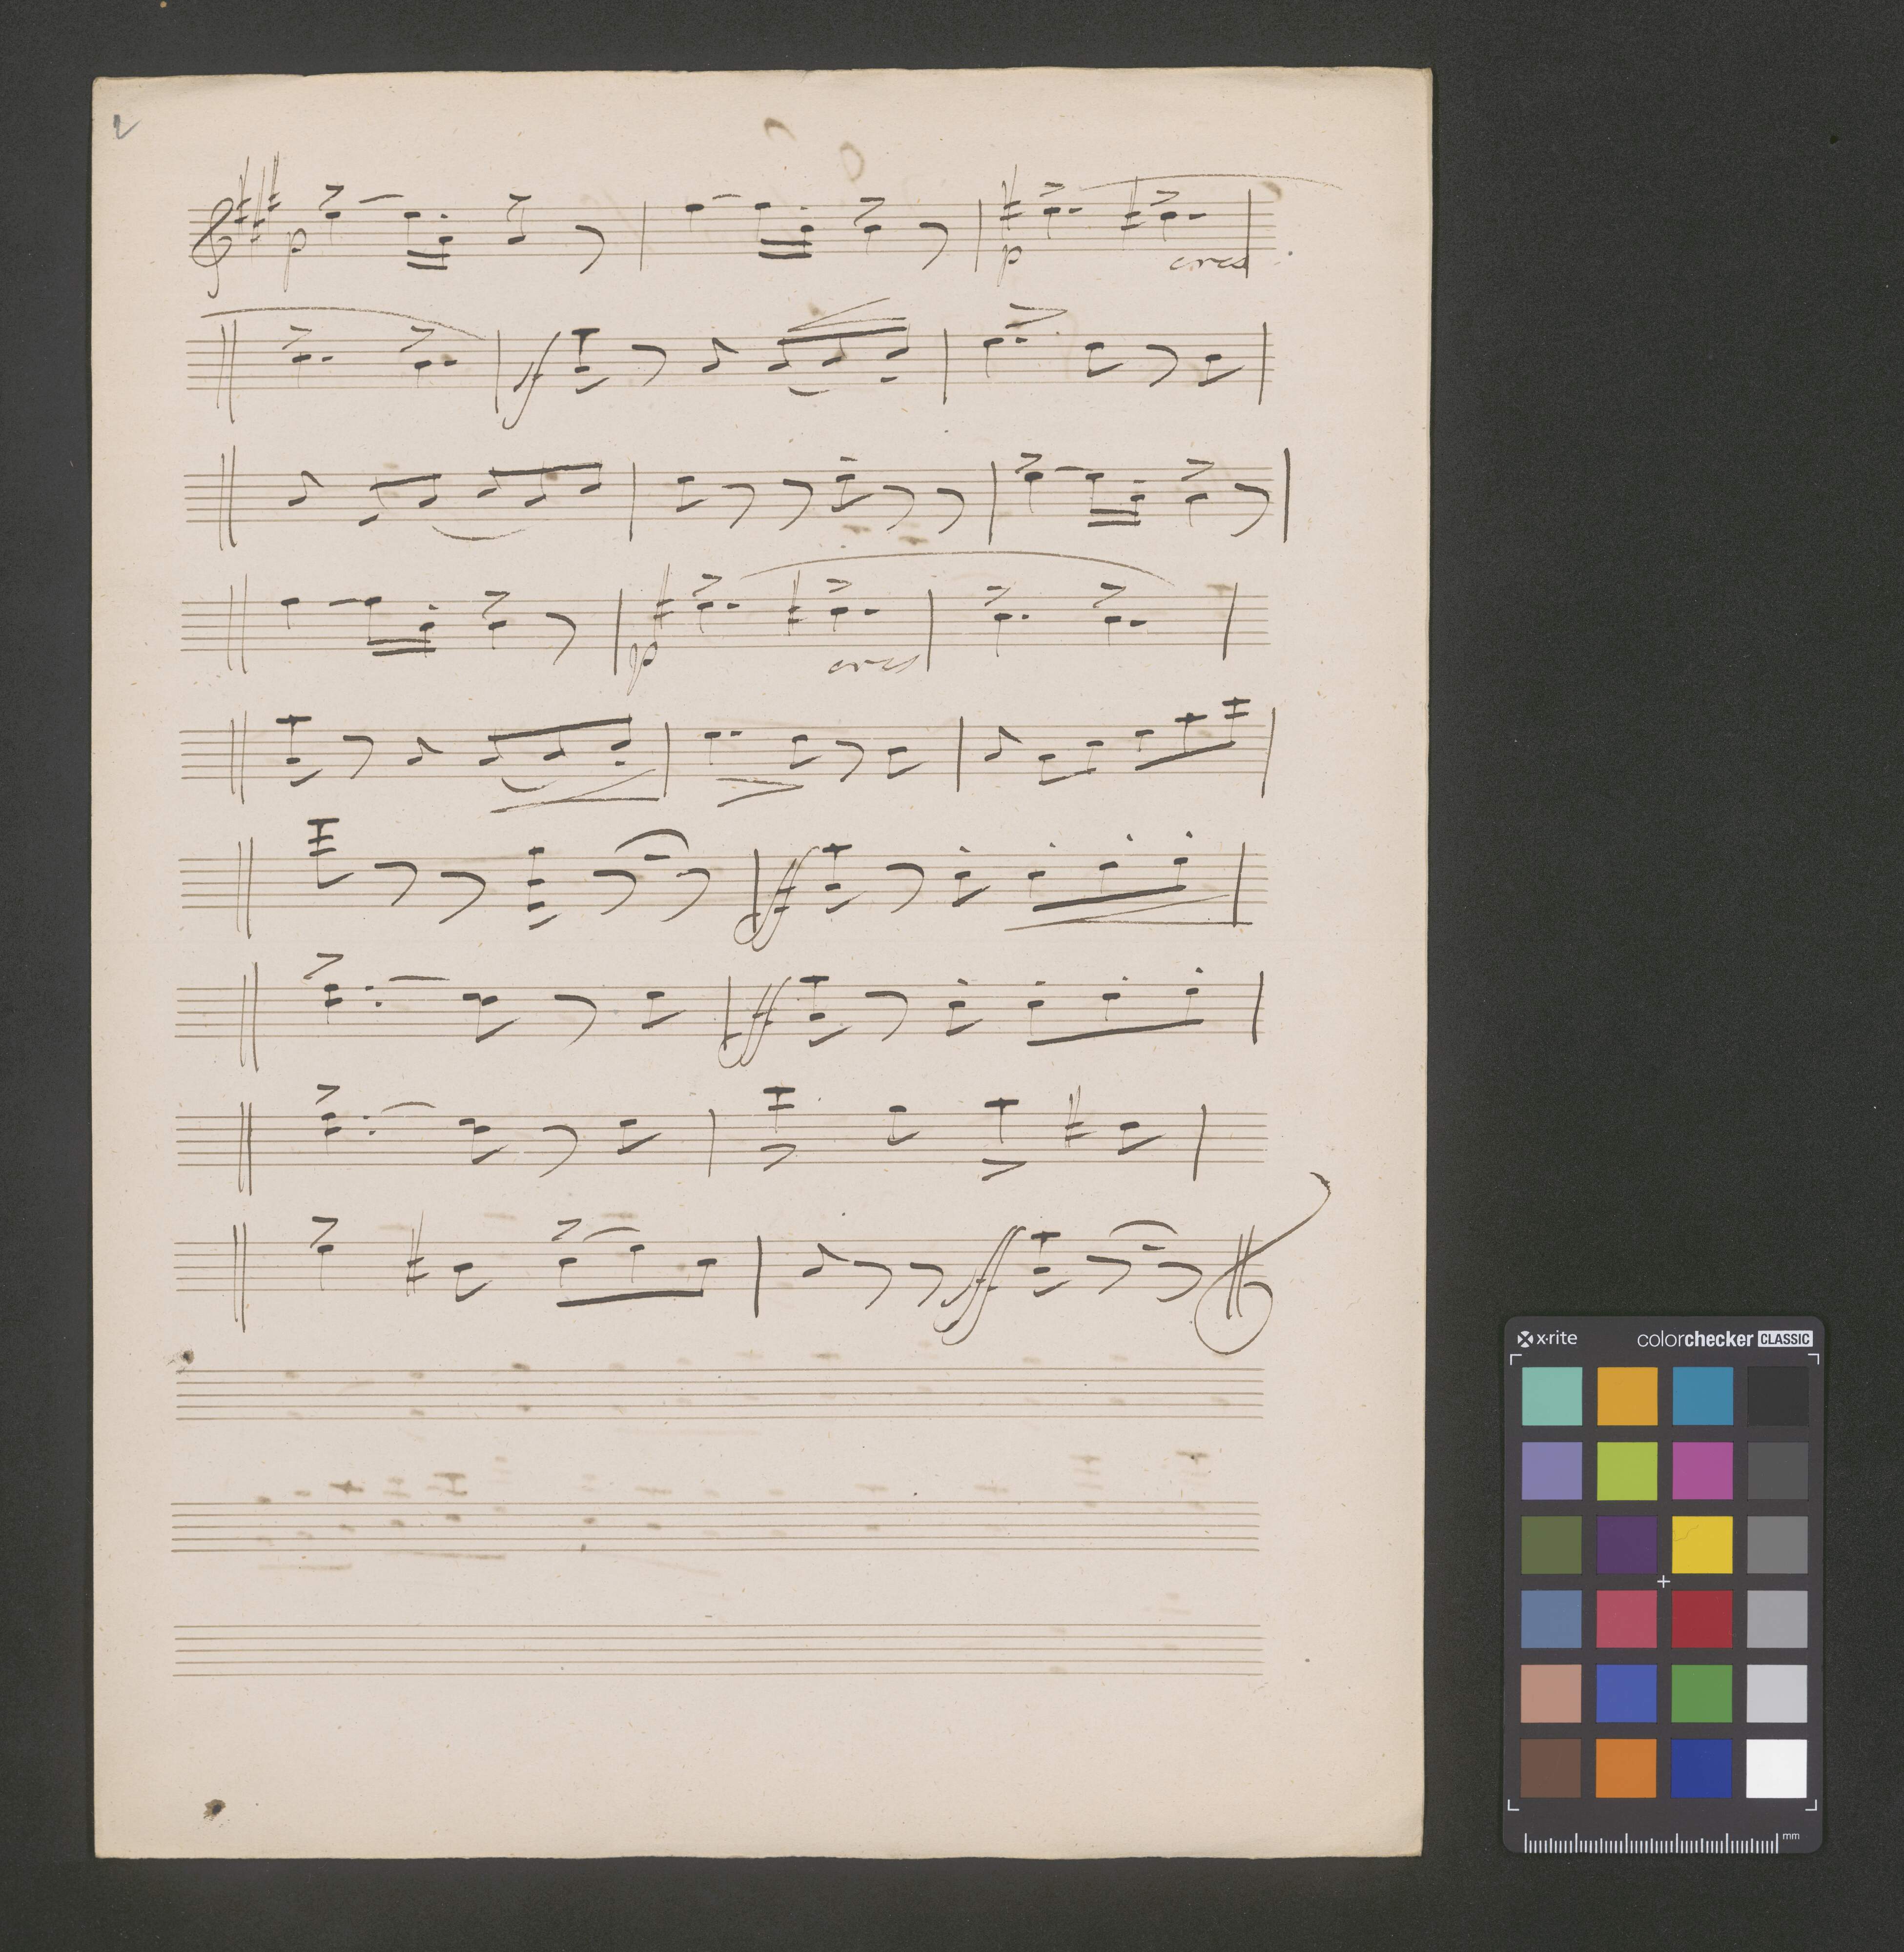 2
p p cres.
f
p cres
ff
ff
ff
x-rite colorchecker CLASSIC
mm